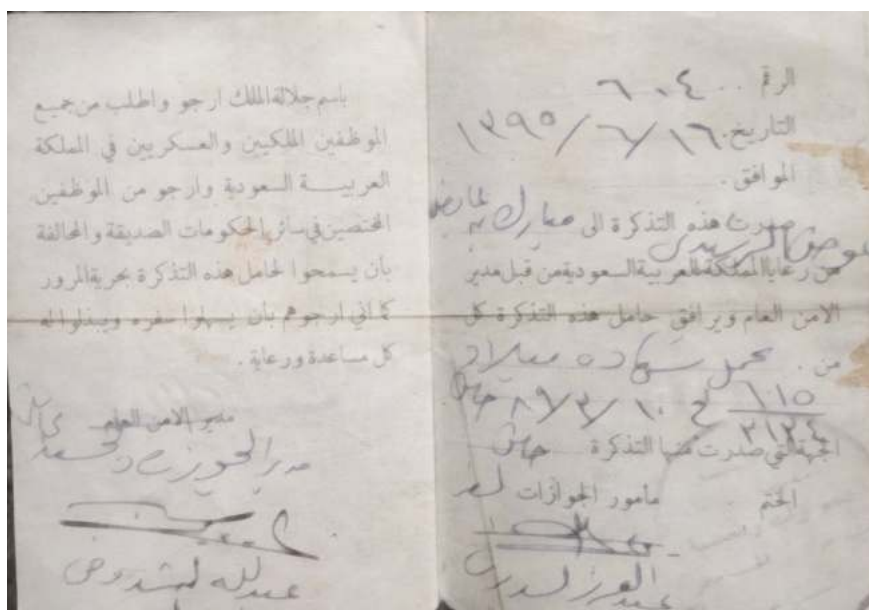 الرقم . ٦٠٤
التاريخ . ١٦ / ٦ / ١٣٩٥
الموافق .
صدرت هذه التذكرة الى مبارك بن عايض
عوض الرشيدي
من رعايا المملكة العربية السعودية من قبل مدير
الامن العام ويرافق حامل هذه التذكرة كل
من . يحمل شهادة ميلاد
١١٥ / ٣١٢٤ ع ١٠ / ٣ / ٨٩
الجهة التي صدرت منها التذكرة
الختم مأمور الجوازات
باسم جلالة الملك ارجو واطلب من جميع
الموظفين الملكيين والعسكريين في المملكة
العربية السعودية وارجو من الموظفين
المختصين في سائر الحكومات الصديقة والمحالفة
بأن يسمحوا لحامل هذه التذكرة بحرية المرور
كما اني ارجوهم بأن يسهلوا سفره ويبذلوا له
كل مساعدة ورعاية .
مدير الامن العام